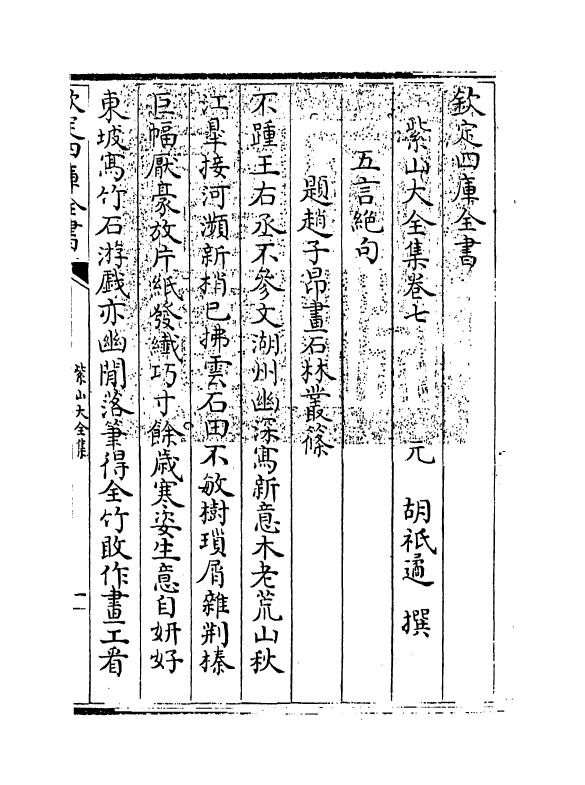 欽定四庫全書
紫山大全集卷七
元 胡祗遹 撰
五言絶句
題趙子昂畫石林叢篠
不踵王右丞不參文湖州幽深寫新意木老荒山秋
江臯接河瀕新梢已拂雲石田不敏樹瑣屑雜荆榛
巨幅厭豪放片紙發纎巧寸餘歲寒姿生意自妍好
東坡寫竹石游戲亦幽閒落筆得全竹敢作畫工看
欽定四庫全書
紫山大全集
一